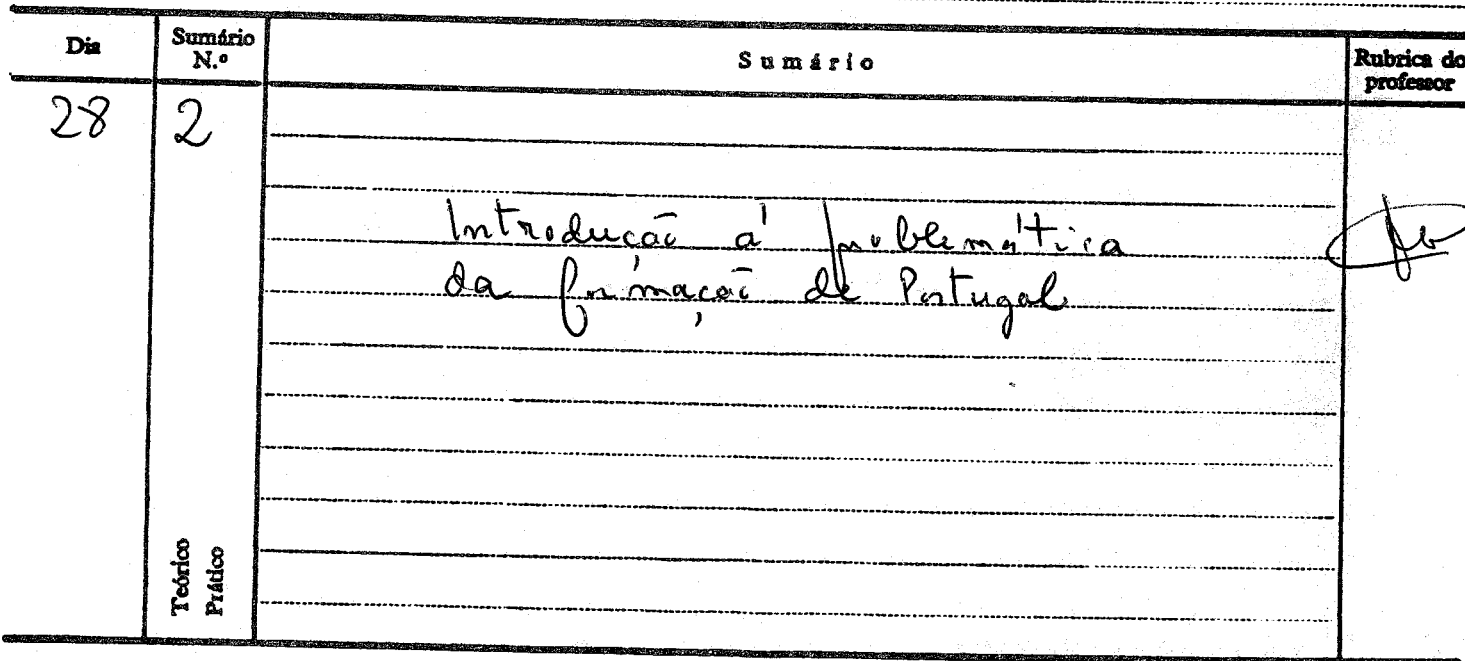 Dia
Sumário
N.º
Sumário
Rubrica do
professor
28
2
Introdução á problemática
da formação de Portugal
Teórico
Prático